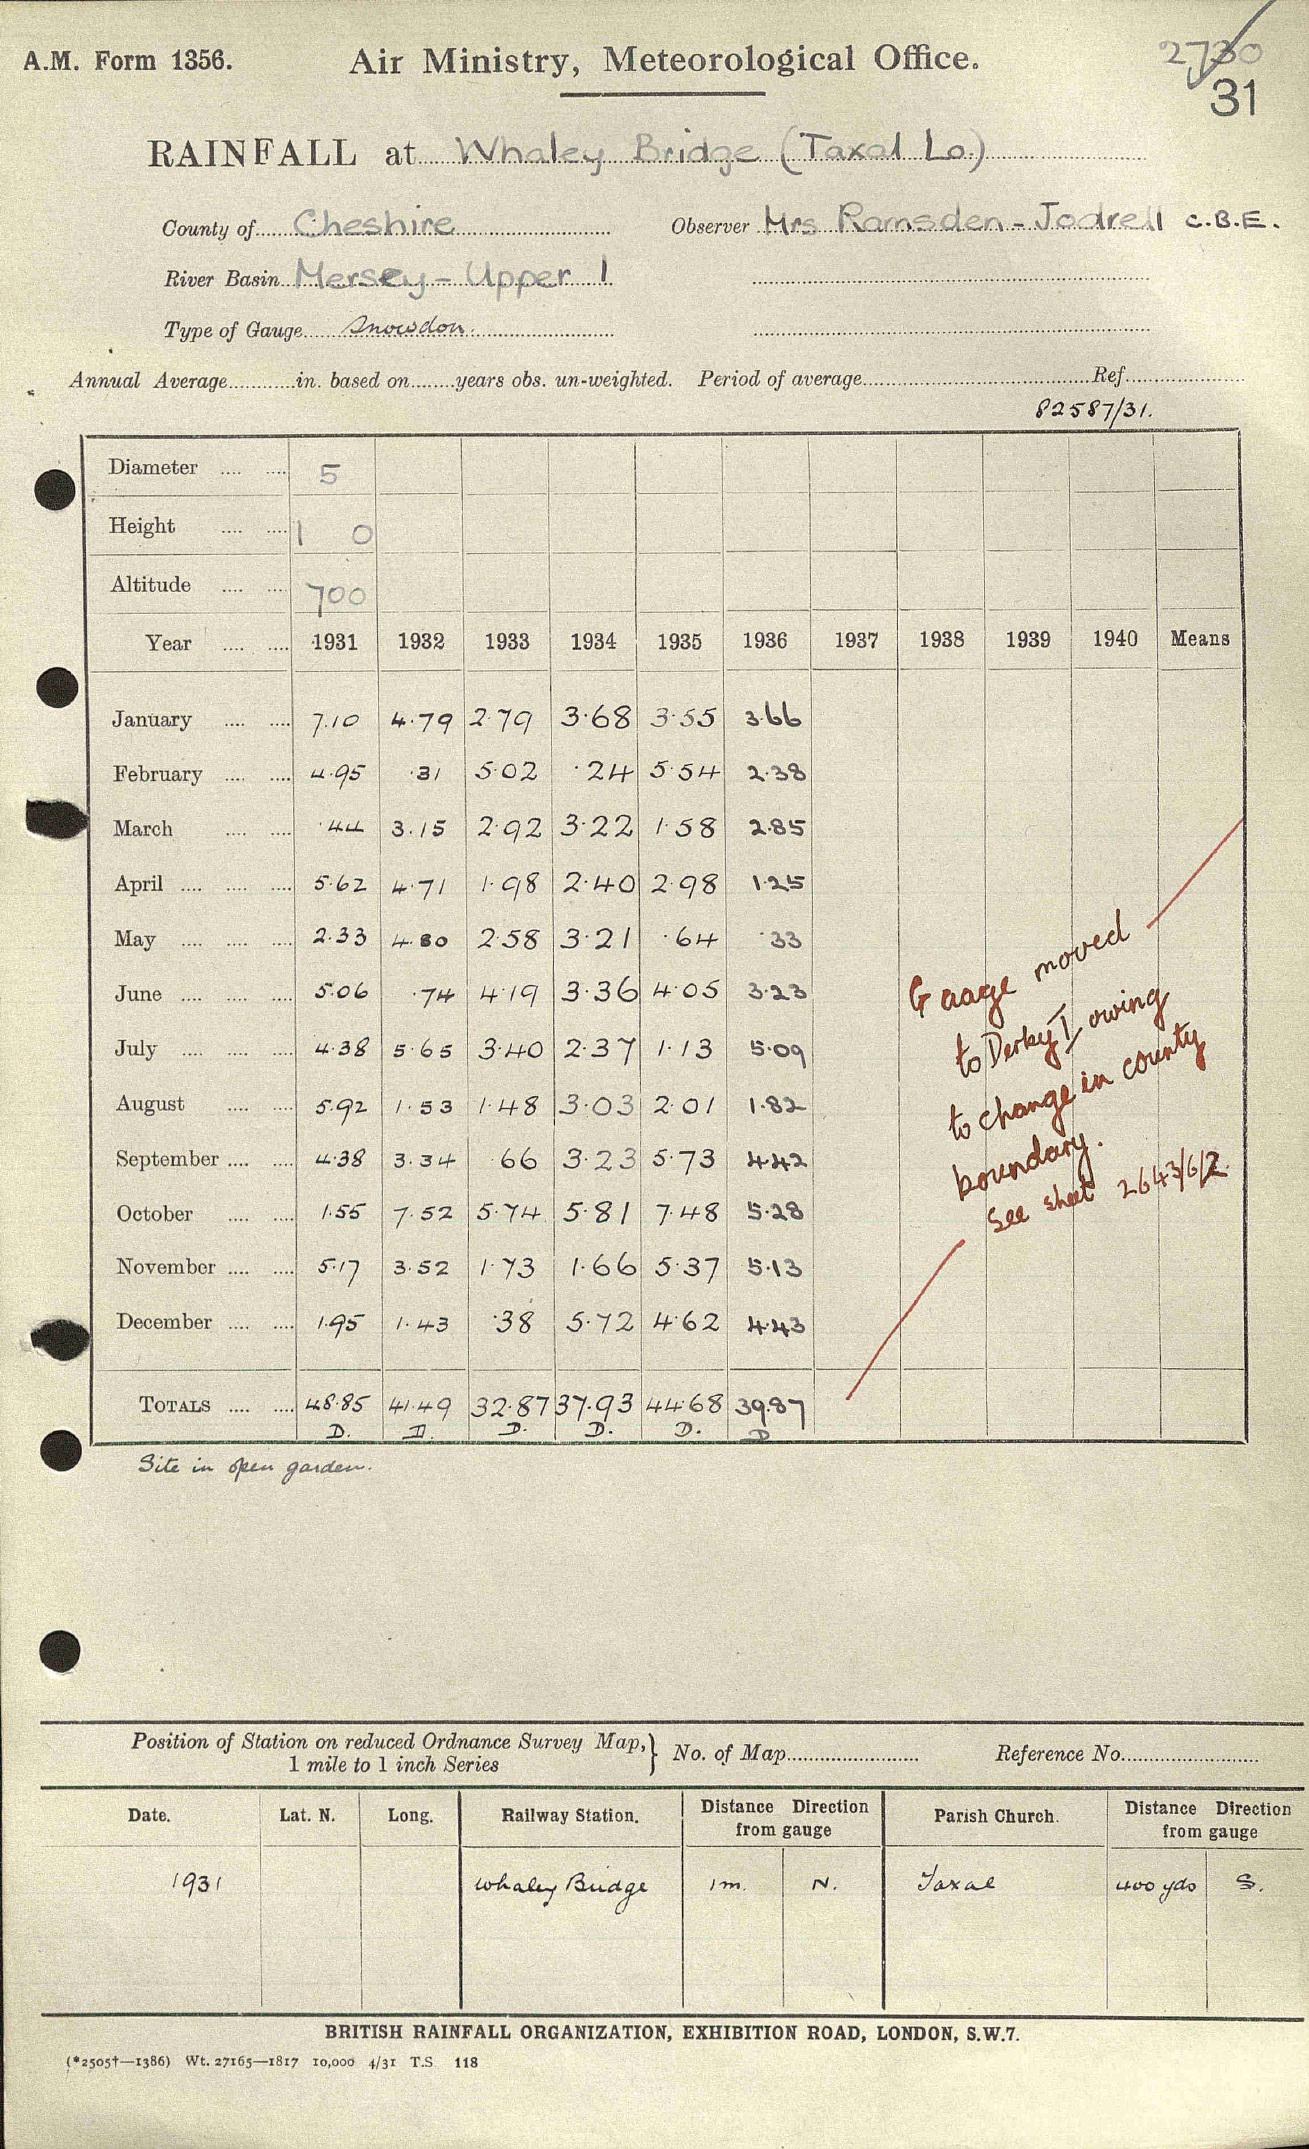 A.M. Form 1356.
Air Ministry, Meteorological Office.
2730
31
RAINFALL at Whaley Bridge (Taxal Lo.)
County of Cheshire Observer Mrs Ramsden-Jodrell C.B.E.
River Basin Mersey - Upper 1
Type of Gauge Snowdon.
Annual Average in. based on years obs. un-weighted. Period of average Ref.
82587/31.
Diameter 5
Height 1 0
Altitude 700
Year 1931 1932 1933 1934 1935 1936 1937 1938 1939 1940 Means
January 7.10 4.79 2.79 3.68 3.55 3.66
February 4.95 .31 5.02 .24 5.54 2.38
March .44 3.15 2.92 3.22 1.58 2.85
April 5.62 4.71 1.98 2.40 2.98 1.25
May 2.33 4.80 2.58 3.21 .64 .33
June 5.06 .74 4.19 3.36 4.05 3.23
July 4.38 5.65 3.40 2.37 1.13 5.09
August 5.92 1.53 1.48 3.03 2.01 1.82
September 4.38 3.34 .66 3.23 5.73 4.42
October 1.55 7.52 5.74 5.81 7.48 5.28
November 5.17 3.52 1.73 1.66 5.37 5.13
December 1.95 1.43 .38 5.72 4.62 4.43
TOTALS 48.85 41.49 32.87 37.93 44.68 39.87
D. D. D. D. D. D
Gauge moved
to Derby I owing
to change in county
boundary.
See sheet 2643/6/2.
Site in open garden.
Position of Station on reduced Ordnance Survey Map, 1 mile to 1 inch Series } No. of Map Reference No.
Date. Lat. N. Long. Railway Station. Distance Direction from gauge Parish Church. Distance Direction from gauge
1931 Whaley Bridge 1 m. N. Taxal 400 yds S.
BRITISH RAINFALL ORGANIZATION, EXHIBITION ROAD, LONDON, S.W.7.
(*2505†—1386) Wt. 27165—1817 10,000 4/31 T.S. 118